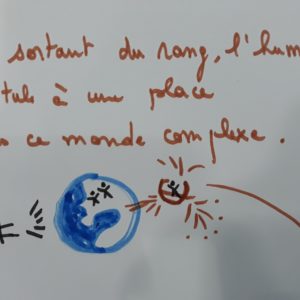 sortant du rang, l'hum
tule à une place
ce monde complexe.